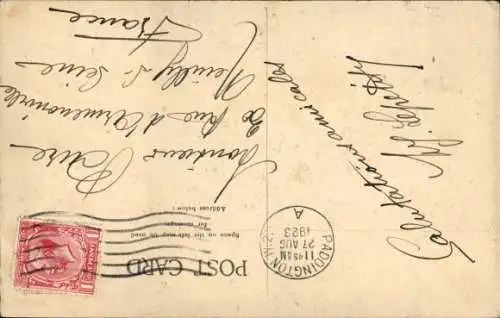 POST CARD
Space on the left may be used
for message.
Address below:
PADDINGTON.W.2
11.45AM
27 AUG
1923
A
Salutations amicales
Monsieur
Paire
20 Rue d'Armenonville
Neuilly s/ Seine
France